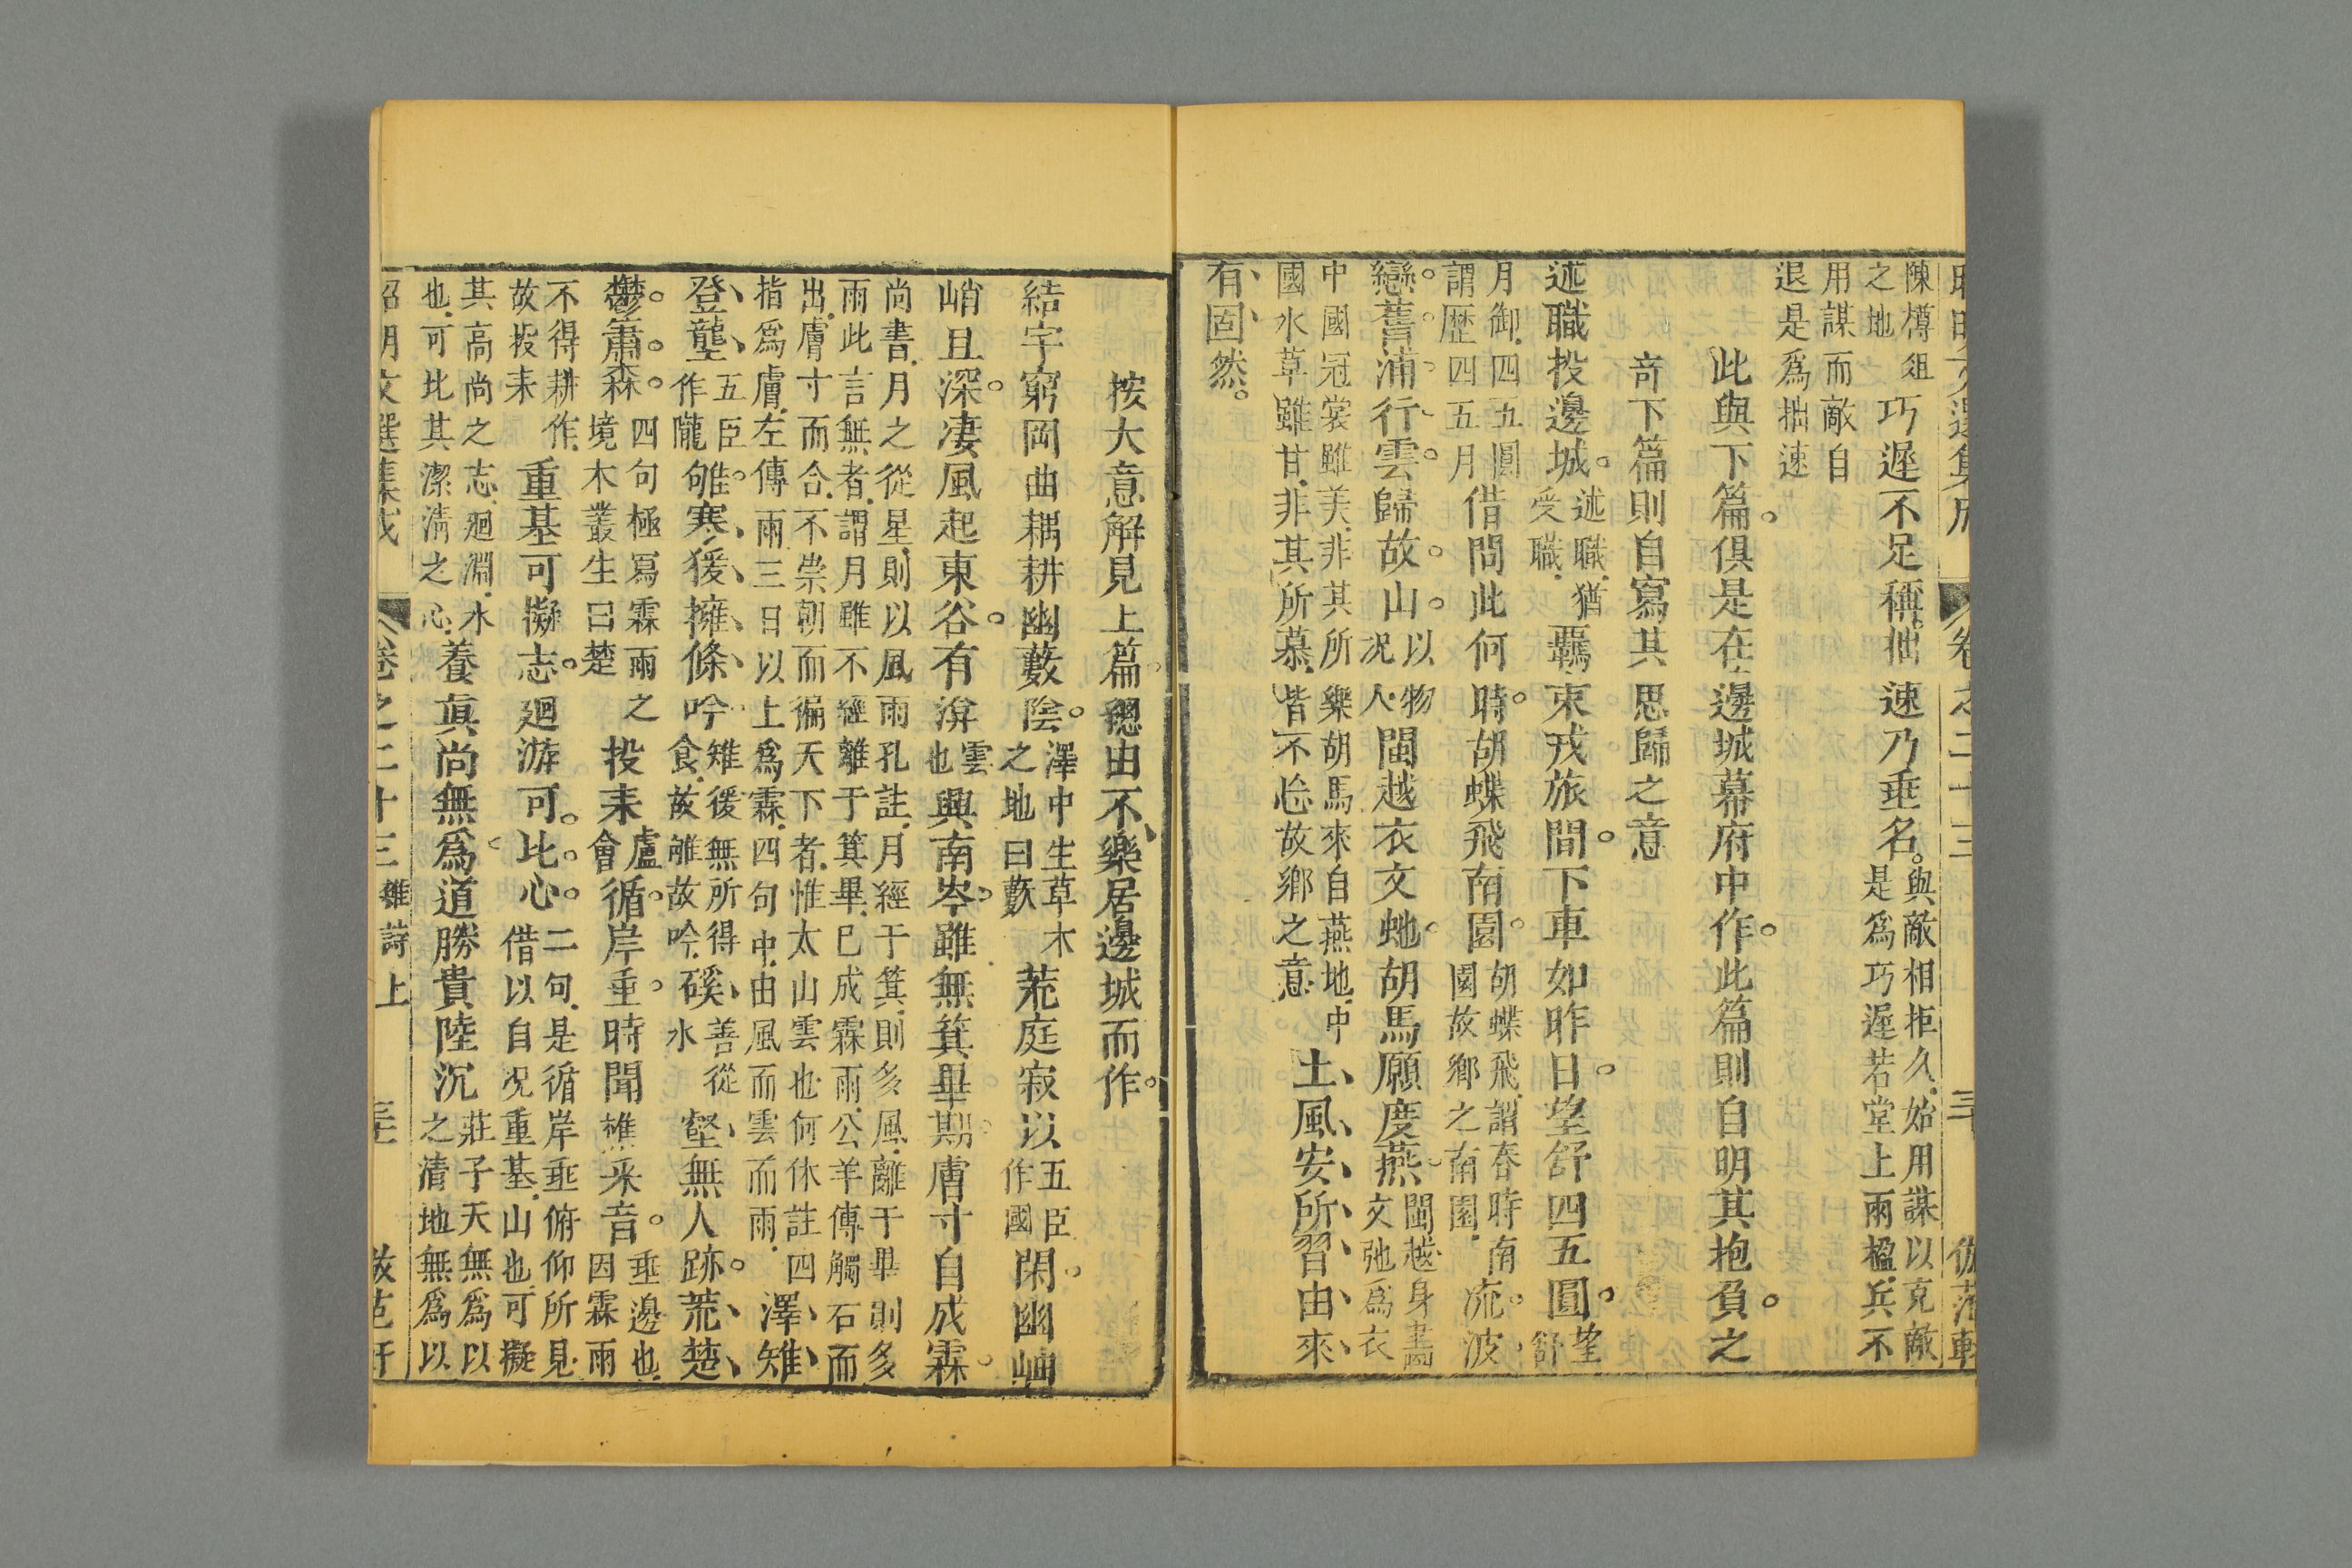 陳樽俎之地巧遲不足稱拙速乃垂名與敵相拒久始用謀以克敵是為巧遲若堂上雨楹兵不
用謀而敵自退是爲拙速
此與下篇俱是在邊城幕府中作此篇則自明其抱負之
奇下篇則自寫其思歸之意
述職投邊城述職猶受職羈束戎旅間下車如昨日望舒四五圓望舒
月御四五圓謂歷四五月借問此何時胡蝶飛南園胡蝶飛謂春時南園故鄉之南園流波
戀舊浦行雲歸故山以物况人閩越衣文虵胡馬願度燕閩越身畵文虵爲衣
中國冠裳雖美非其所樂胡馬來自燕地中國水草雖甘非其所慕皆不忘故鄉之意土風安所習由來
有固然
按大意解見上篇總由不樂居邊城而作
結宇窮岡曲耦耕幽藪陰澤中生草木之地曰藪荒庭寂以五臣作國閑幽岫
峭且深凄風起東谷有渰雲也興南岑雖無箕畢期膚寸自成霖
尚書月之從星則以風雨孔註月經于箕則多風離于畢則多雨此言無者謂月雖不經離于箕畢已成霖雨公羊傳觸石而
出膚寸而合不崇朝而徧天下者惟太山雲也何休註四指爲膚左傳雨三日以上爲霖四句中由風而雲而雨澤雉
登壟五臣作隴雊寒猨擁條吟雉猨無所得食故雊故吟磎善從水壑無人跡荒楚
鬱蕭森四句極寫霖雨之境木叢生曰楚投耒盧會循岸垂時聞樵采音垂邊也因霖雨
不得耕作故投耒重基可擬志廻游可比心二句是循岸垂俯仰所見借以自况重基山也可擬
其高尚之志廻淵水也可比其潔淸之心養眞尚無爲道勝貴陸沉莊子天無爲以之清地無爲以
昭明文選集成 卷之二十三 雜詩上